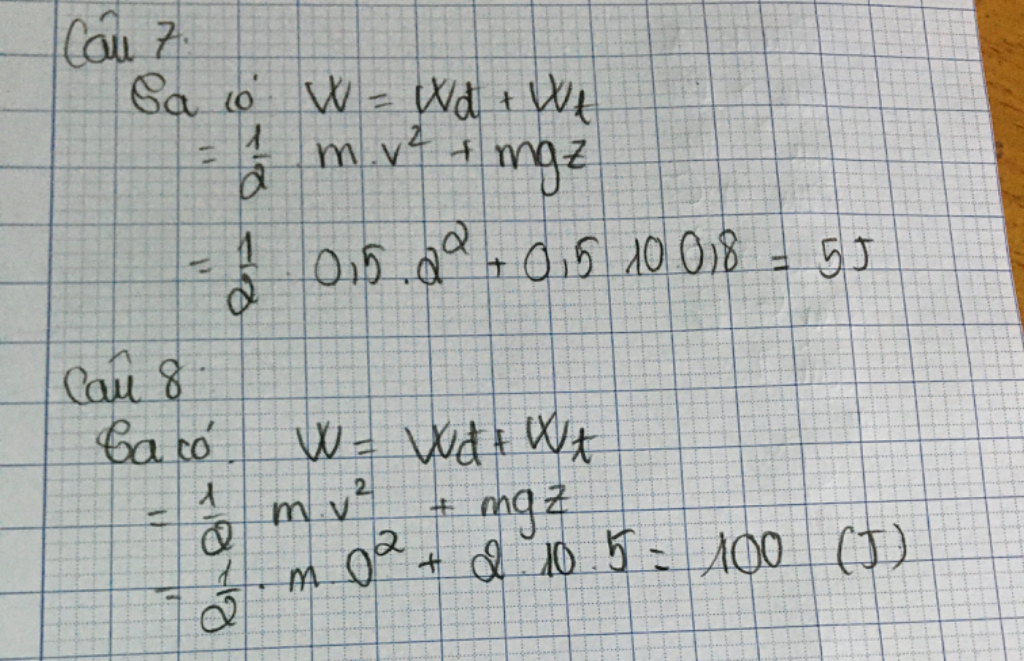 Câu 7.
Ta có W = Wđ + Wt
= 1/2 m.v² + mgz
= 1/2 . 0,5 . 2² + 0,5 10 0,8 = 5J
Câu 8.
Ta có. W = Wđ + Wt
= 1/2 m.v² + mgz
= 1/2 . m 0² + 2.10.5 = 100 (J)